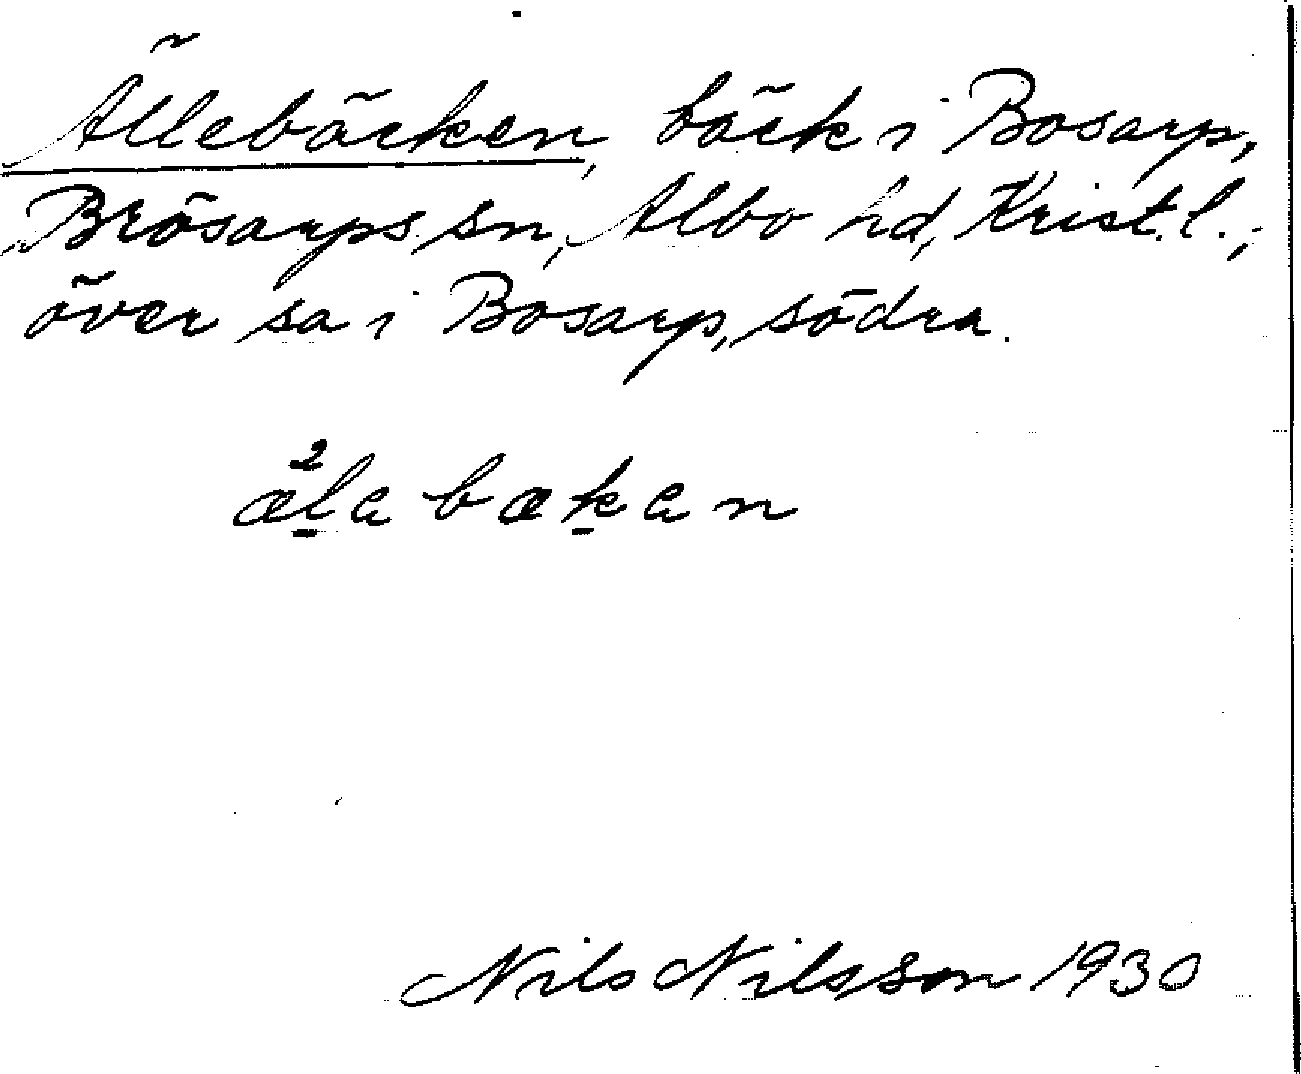 Ällebäcken, bäck i Bosarp,
Brösarps sn, Albo hd, Krist. l.,
över sa i Bosarp, södra.
ä²lebæken
Nils Nilsson 1930